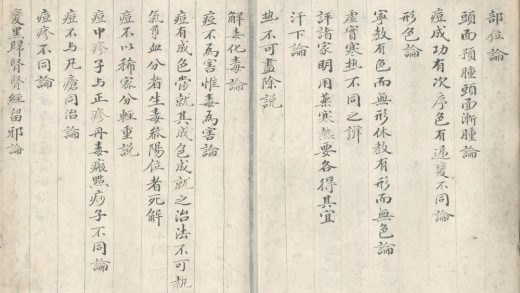 部位論
頭面預腫頭面漸腫論
痘成功有次序色有遞變不同論
形色論
寧教有色而無形休教有形而無色論
虛實寒热不同之辨
評諸家明用藥寒熱要各得其宜
汗下論
热不可盡除說
解毒化毒論
痘不為害惟毒為害論
痘有成色當就其成色成就之治法不可執
氣尊血分者生毒叅陽位者死解
痘不以稀密分輕重説
痘中疹子与正疹丹毒癍㸃痧子不同論
痘不与凡瘡同治論
痘疹不同論
變黑歸腎腎經留邪論